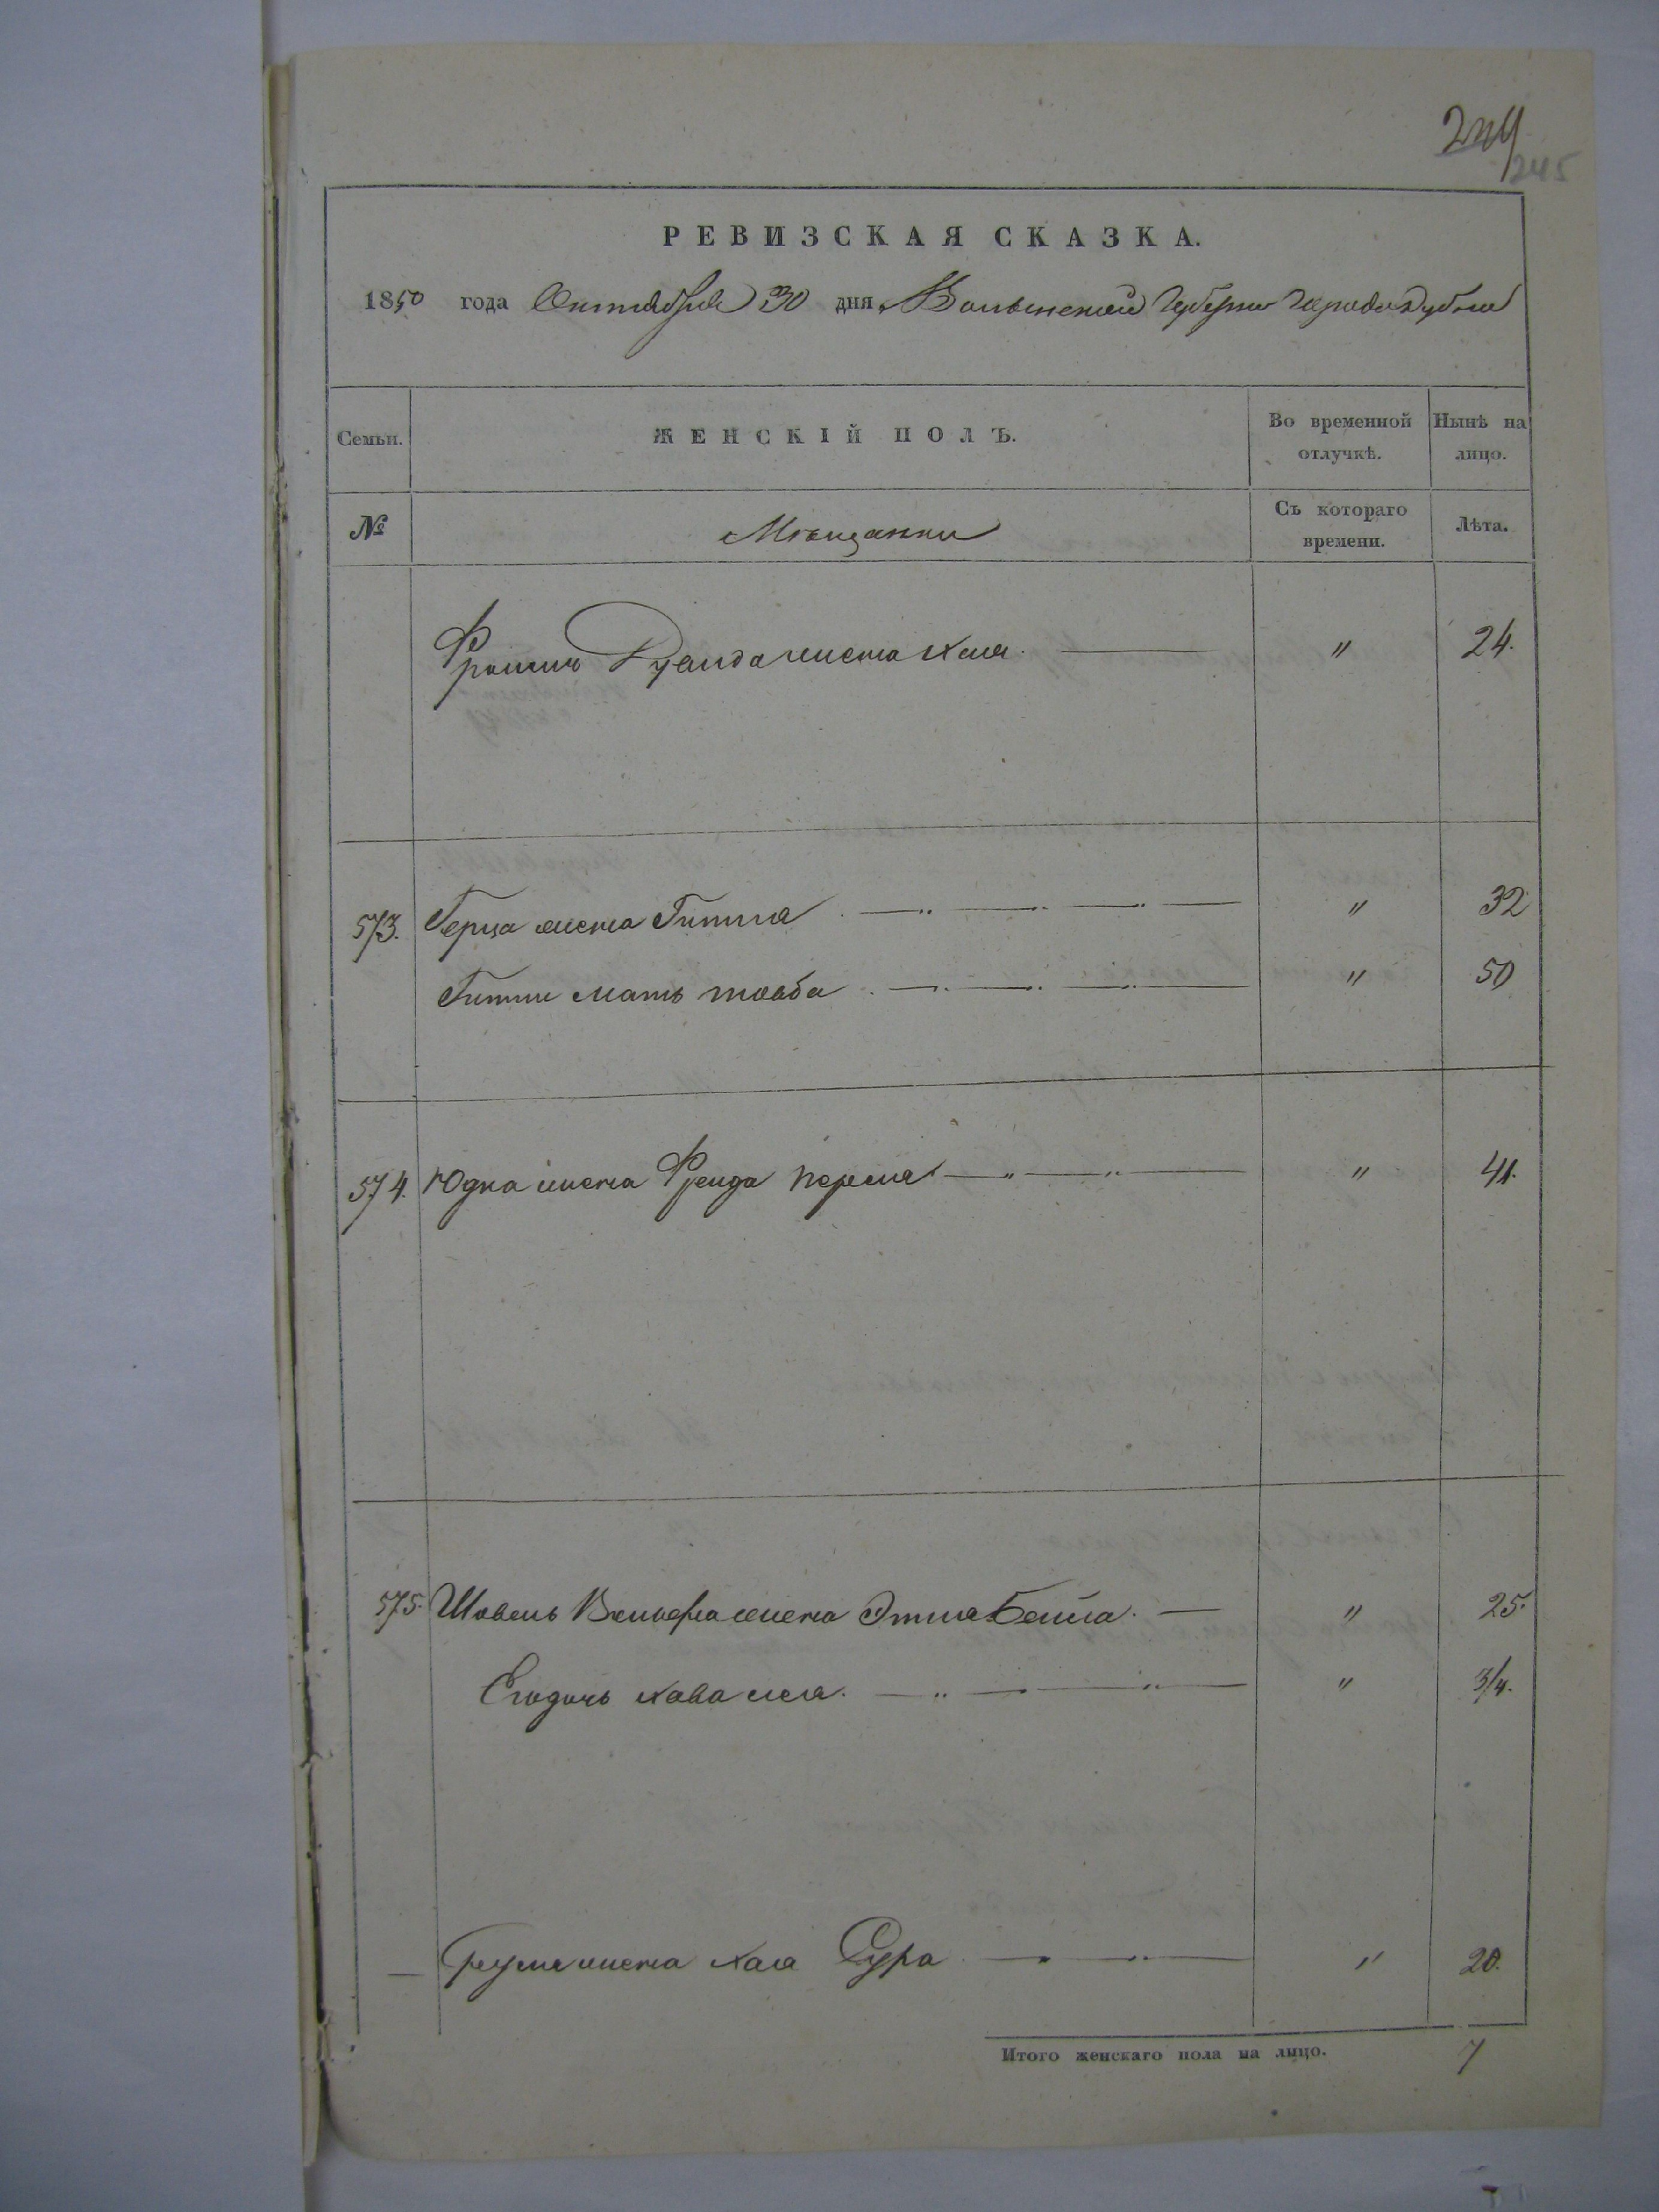 244
245
РЕВИЗСКАЯ СКАЗКА.
1850 года Октября 30 дня Волынской Губернии Города Дубна
Семьи. ЖЕНСКІЙ ПОЛЪ. Во временной отлучкѣ. Нынѣ на лицо.
№ Мѣщанки Съ котораго времени. Лѣта.
жена Хая 24.
573. Герца жена Гитля " 32
Гитли мать товба " 50
574. Юдка жена Фрейда перля " 41.
575. Шовель Вольфа жена Этля Бейла " 25.
Егодочь хава " 3/4.
жена хая Сура " 20.
Итого женскаго пола на лицо. 7